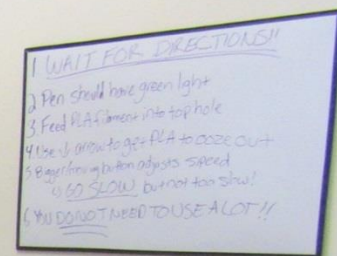 1. WAIT FOR DIRECTIONS!!
2. Pen should have green light
3. Feed PLA filament into top hole
4. Use ↓ arrow to get PLA to ooze out
5. Bigger button adjusts speed
GO SLOW but not too slow!
6. YOU DO NOT NEED TO USE A LOT!!